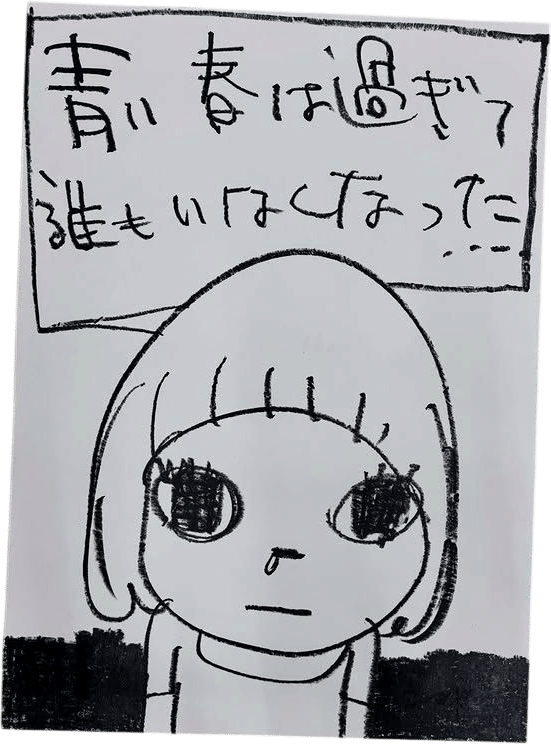 青い春は過ぎて
誰もいなくなった...